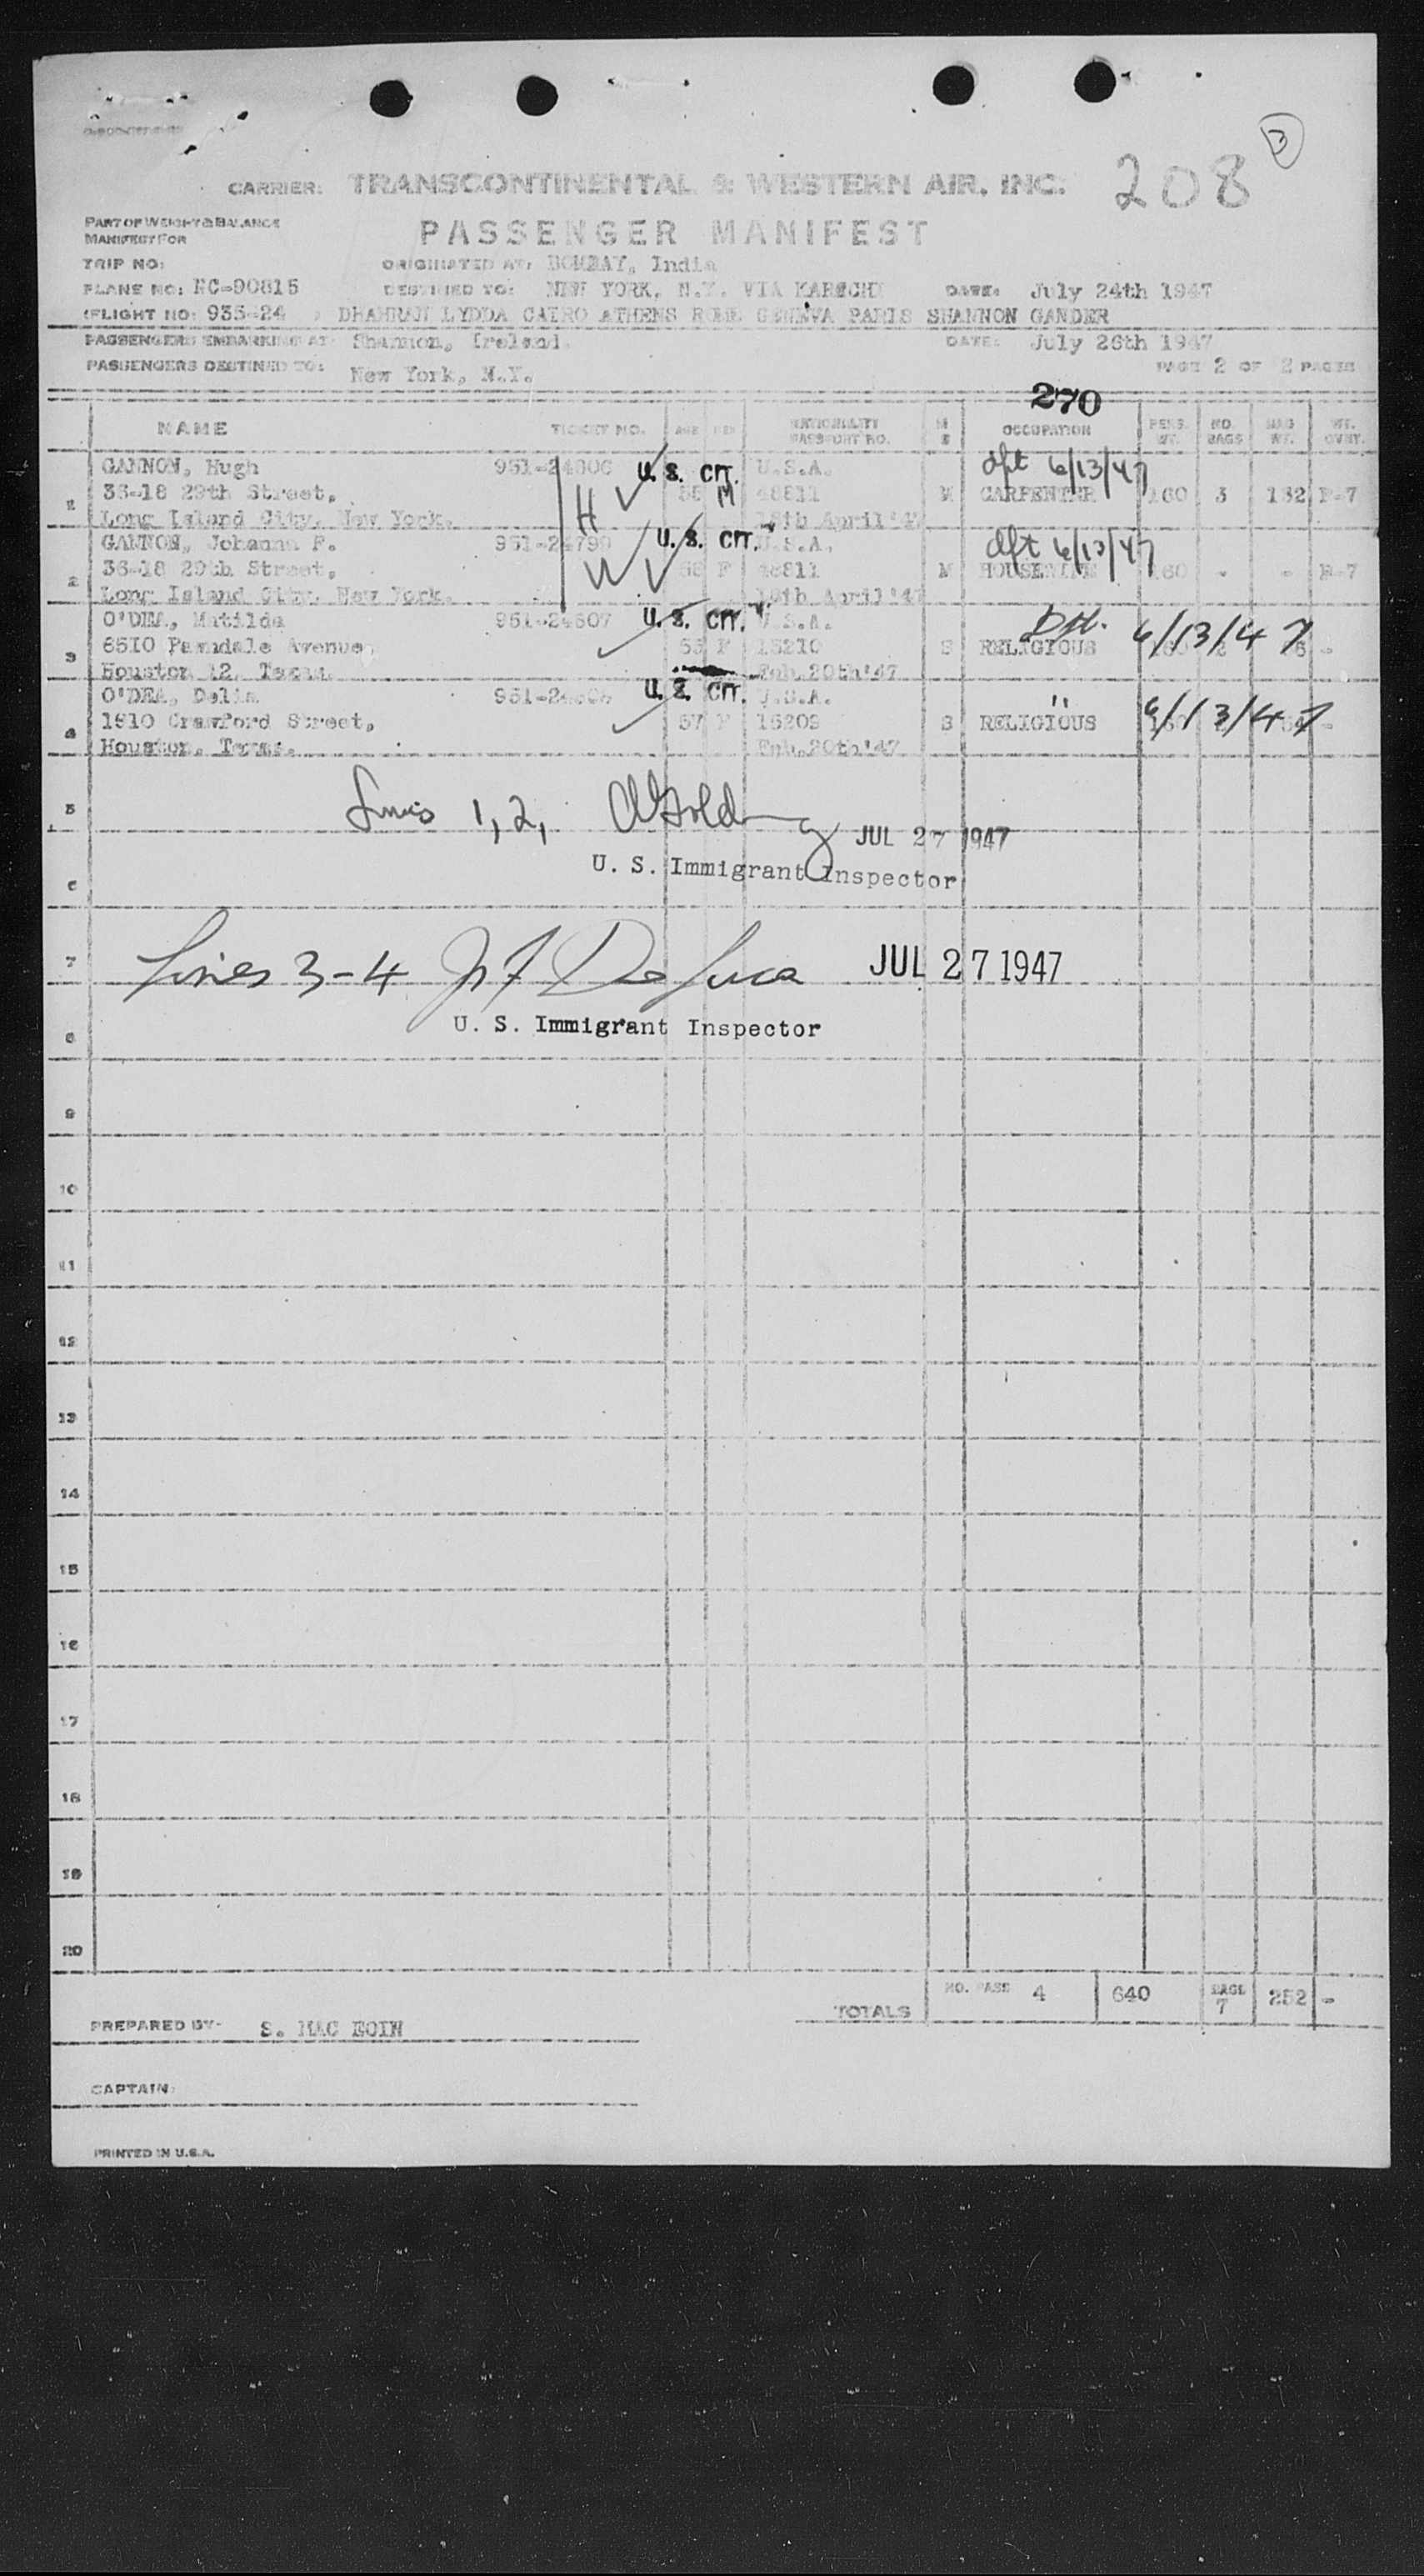 3
CARRIER: TRANSCONTINENTAL & WESTERN AIR, INC. 208
PART OF WEIGHT & BALANCE
MANIFEST FOR
PASSENGER MANIFEST
TRIP NO: ORIGINATED AT: BOMBAY, India
PLANE NO: NC-90815 DESTINED TO: NEW YORK, N.Y. VIA KARACHI DATE: July 24th 1947
FLIGHT NO: 935-24 DHAHRAN LYDDA CAIRO ATHENS ROME GENEVA PARIS SHANNON GANDER
PASSENGERS EMBARKING AT: Shannon, Ireland. DATE: July 26th 1947
PASSENGERS DESTINED TO: New York, N.Y. PAGE 2 OF 2 PAGES
270
NAME TICKET NO. AGE SEX NATIONALITY PASSPORT NO. M S OCCUPATION PERS. WT. NO. BAGS BAG WT. WT. OVRT.
GANNON, Hugh 951-24806 U.S. CIT. U.S.A. dft 6/13/47
1 36-18 29th Street, H M 48811 M CARPENTER 160 3 182 P-7
Long Island City, New York. April
GANNON, Johanna F. 951-24799 U.S. CIT. U.S.A. dft 6/13/47
2 36-18 29th Street, W F 48811 M HOUSEWIFE 160 - - P-7
Long Island City, New York. April
O'DEA, Matilda 951-24807 U.S. CIT. U.S.A. Dft. 6/13/47
3 6510 Avenue, 53 F 15210 S RELIGIOUS -
Houston 12, Texas. Feb. 20th '47
O'DEA, Delia U.S. CIT. U.S.A. " 6/13/47
4 1910 Crawford Street, 57 F 15209 S RELIGIOUS -
Houston, Texas. Feb. 20th '47
5 Lines 1, 2, JUL 27 1947
U. S. Immigrant Inspector
6
7 Lines 3-4 De Luca JUL 27 1947
U. S. Immigrant Inspector
8
9
10
11
12
13
14
15
16
17
18
19
20
TOTALS NO. PASS 4 640 BAGS 7 252 -
PREPARED BY- S. MAC EOIN
CAPTAIN:
PRINTED IN U.S.A.